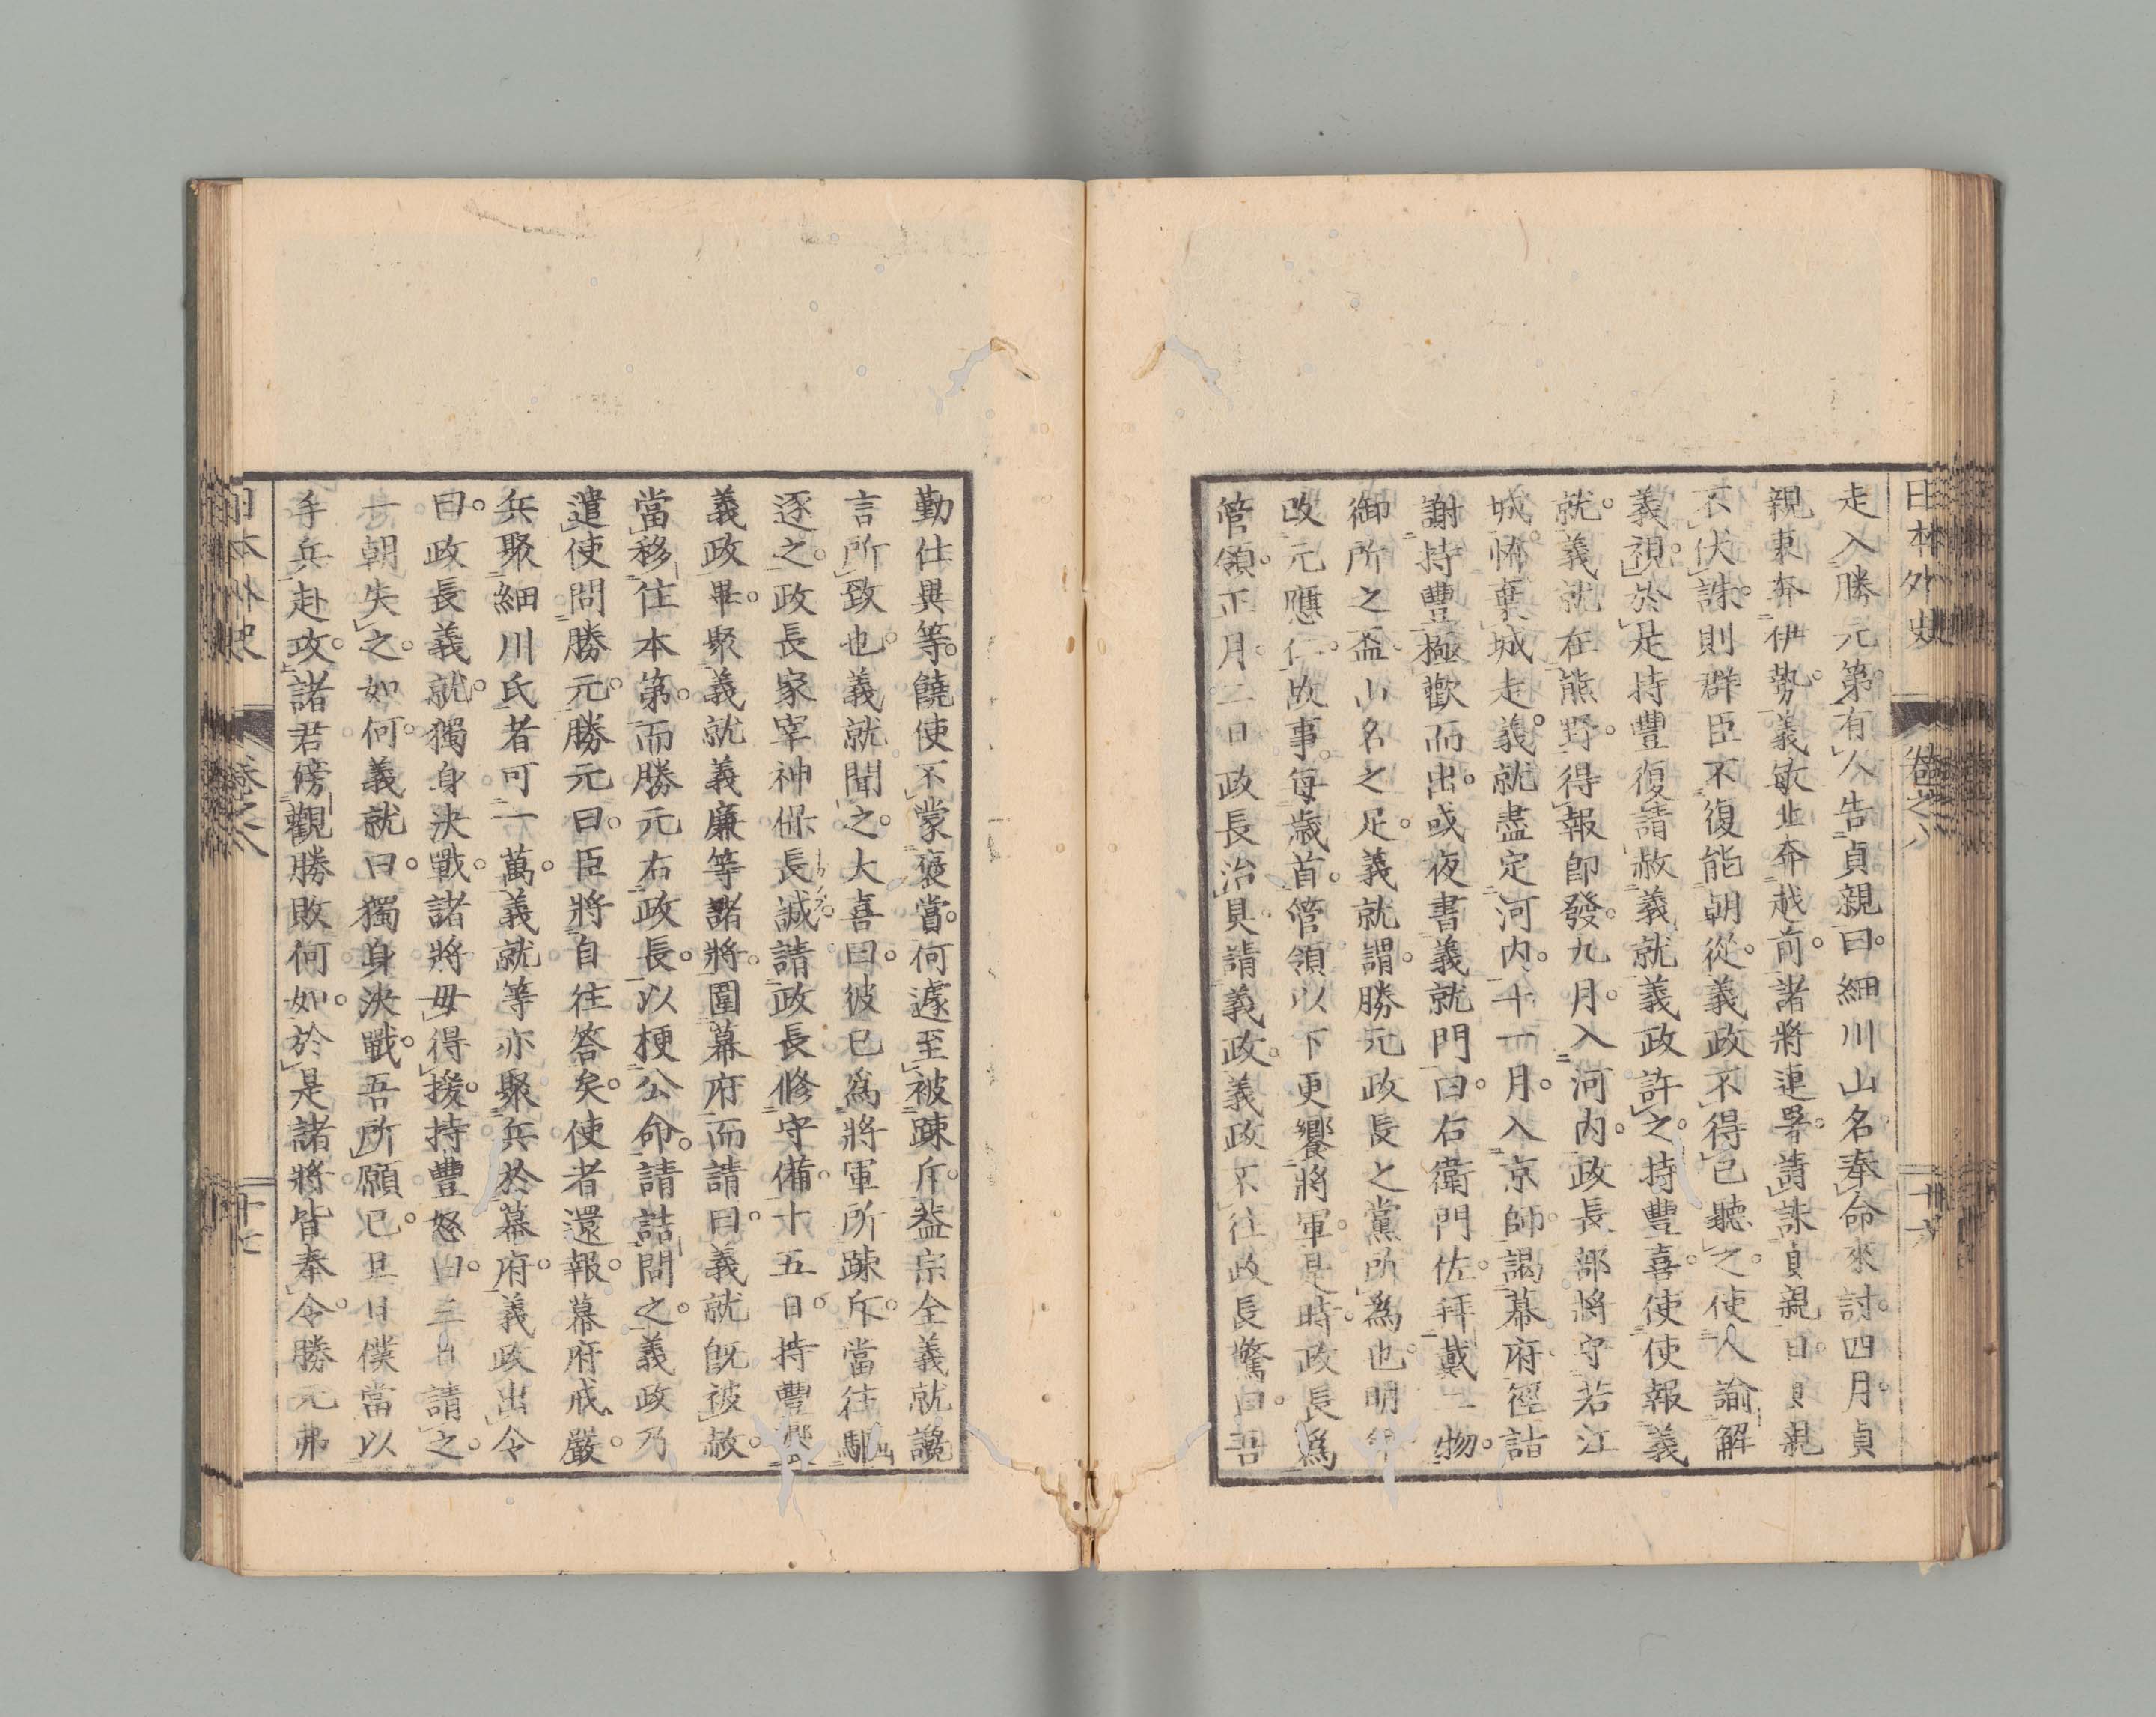 日本外史 卷之八 十六
走入勝元第。有人告貞親曰。細川山名奉命來討。四月。貞
親東奔伊勢。義敏北奔越前。諸將連署。請誅貞親。曰。貞親
不伏誅。則群臣不復能朝從。義政不得已聽之。使人諭解
義視。於是持豐復請赦義就。義政許之。持豐喜。使使報義
就。義就在熊野。得報即發。九月。入河內。政長部將守若江
城。怖棄城走。義就盡定河內。十一月。入京師。謁幕府。徑詣
謝持豐。極歡而出。或夜書義就門曰。右衛門佐。拜戴二物。
御所之盃。山名之足。義就謂。勝元政長之黨所爲也。明年
改元應仁。故事。每歲首。管領以下更饗將軍。是時。政長爲
管領。正月二日。政長治具。請義政。義政不往。政長驚曰。吾
勤仕異等。饒使不蒙褒賞。何遽至被疎斥。葢宗全義就讒
言所致也。義就聞之。大喜曰。彼已爲將軍所疎斥。當往驅
逐之。政長家宰神保長誠請政長修守備。十五日。持豐饗
義政。畢。聚義就義廉等諸將。圍幕府而請曰。義就旣被赦。
當移住本第。而勝元右政長。以梗公命。請詰問之。義政乃
遣使問勝元。勝元曰。臣將自往答矣。使者還報。幕府戒嚴。
兵聚細川氏者可一萬。義就等亦聚兵於幕府。義政出令
曰。政長義就。獨身決戰。諸將毋得援。持豐怒曰。三日請之
一朝失之。如何。義就曰。獨身決戰。吾所願已。旦日僕當以
手兵赴政。諸君傍觀勝敗何如。於是諸將皆奉令。勝元弗
日本外史 卷之八 十七